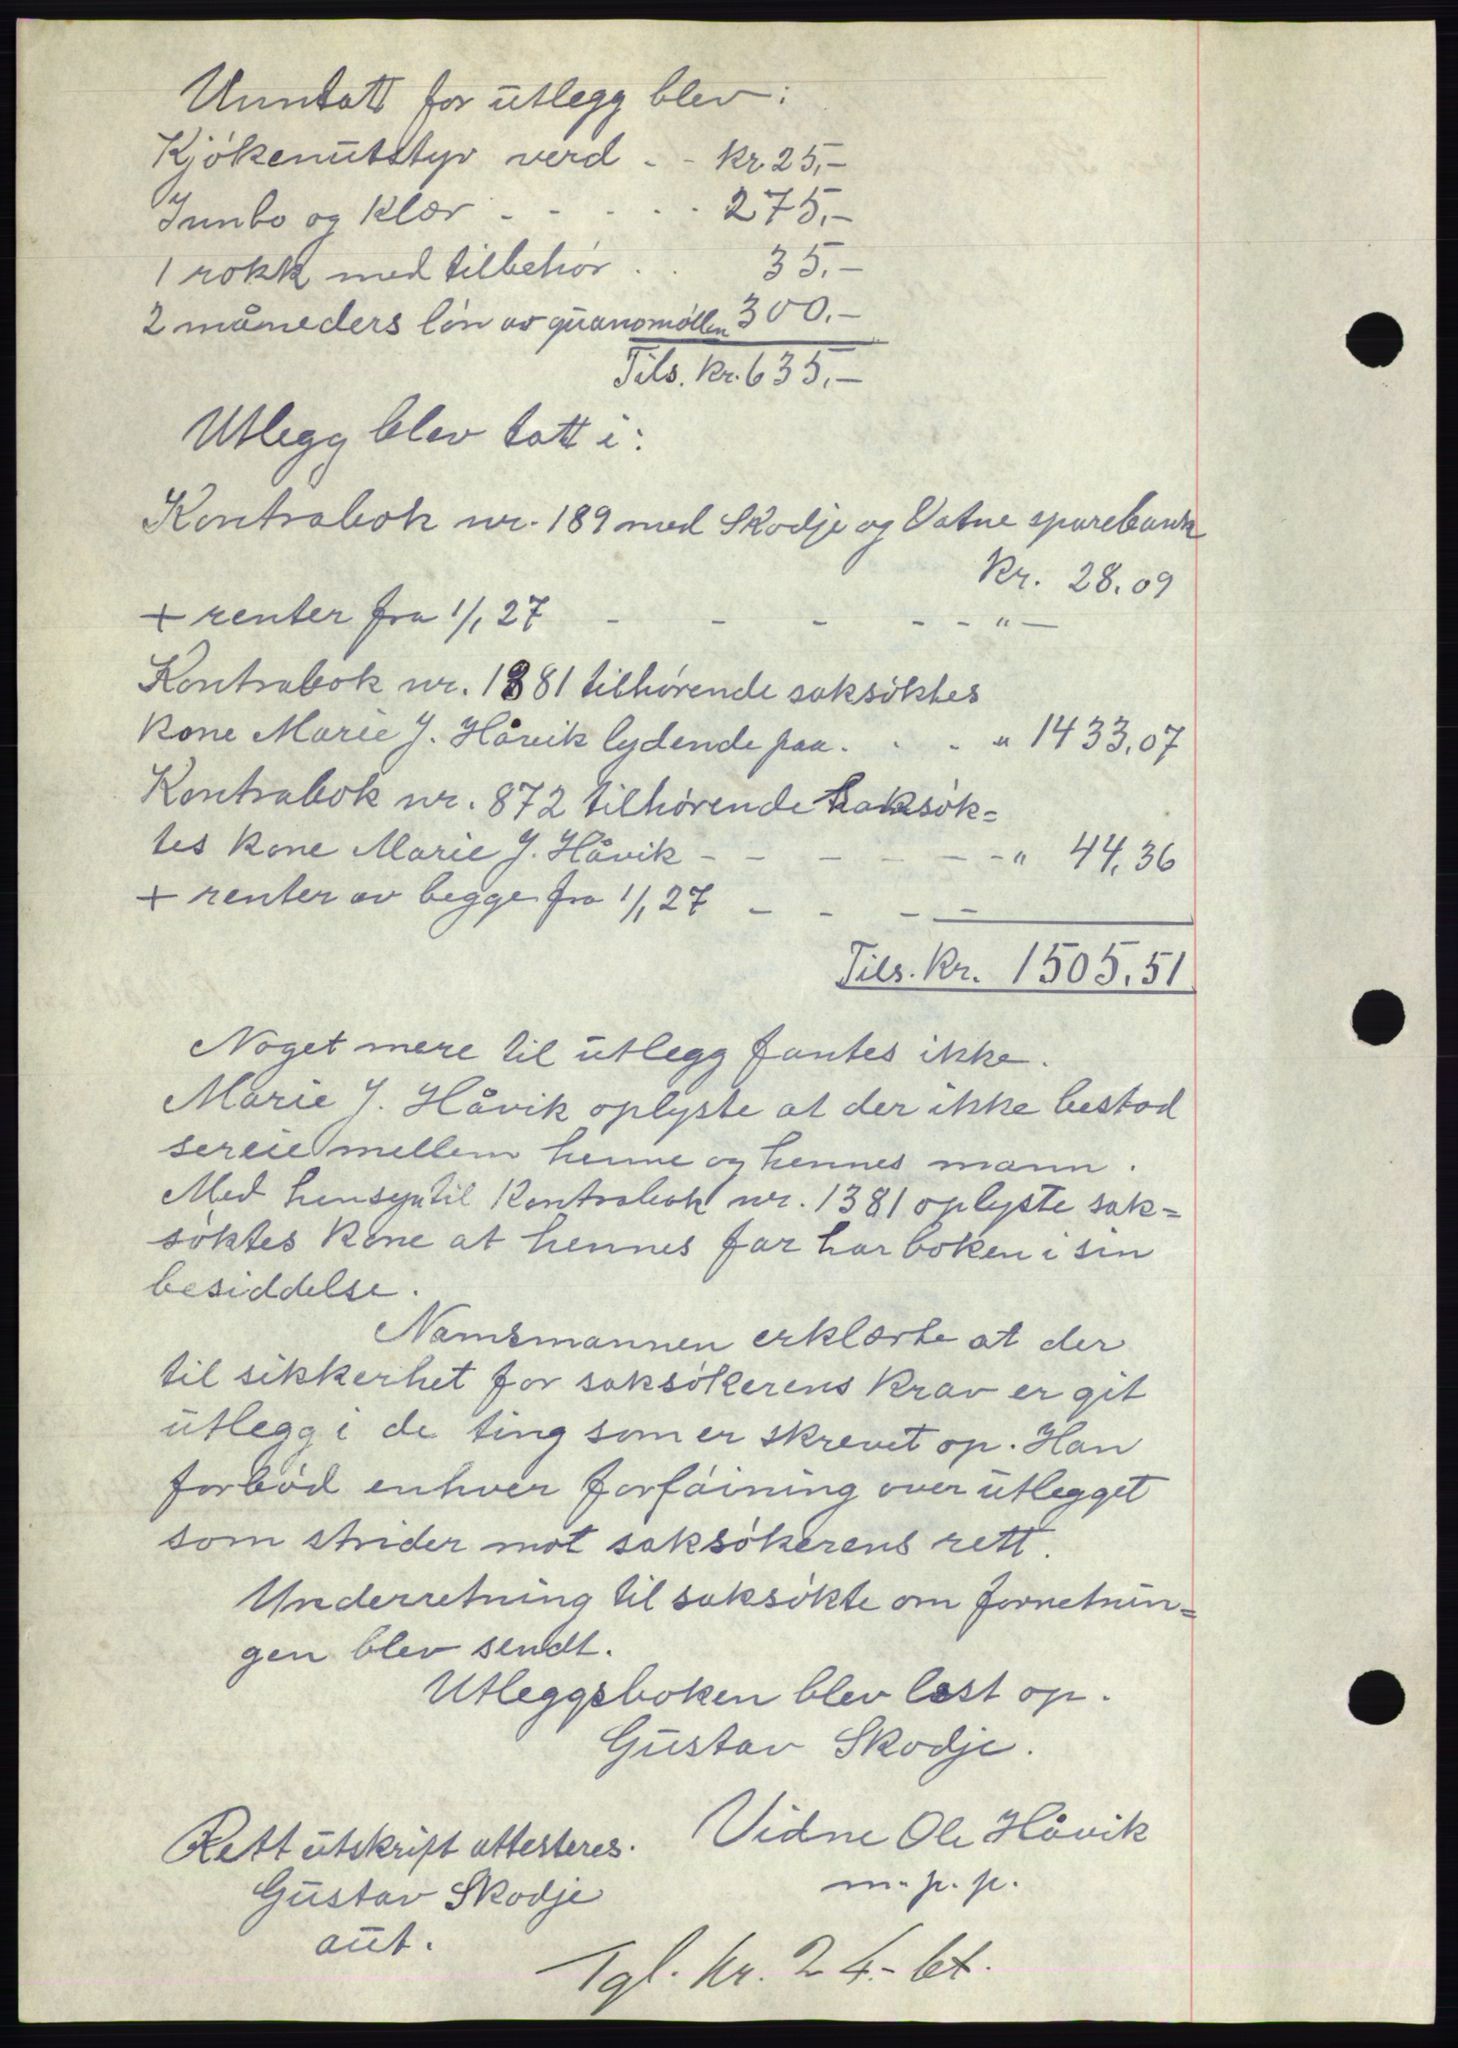 Unntatt for utlegg blev:
Kjókenutstyr verd - - kr. 25,-
Innbo og klær - - - - - 275,-
1 rokk med tilbehór . . 35,-
2 måneders lón av guanomóllen 300.-
Tils. kr. 635,-
Utlegg blev tatt i:
Kontrabok nr. 189 med Skodje og Vatne sparebank
kr. 28.09
+ renter fra 1/1 27 - - - - - " -
Kontrabok nr. 1381 tilhórende saksóktes
kone Marie J. Håvik lydende paa . . . " 1433,07
Kontrabok nr. 872 tilhórende saksók=
tes kone Marie J. Håvik - - - - - - " 44,36
+ renter av begge fra 1/1 27 - - - -
Tils. kr. 1505,51
Noget mere til utlegg fantes ikke.
Marie J. Håvik oplyste at der ikke bestod
sereie mellem henne og hennes mann.
Med hensyn til kontrabok nr. 1381 oplyste sak=
sóktes kone at hennes far har boken i sin
besiddelse.
Namsmannen erklærte at der
til sikkerhet for saksókerens krav er git
utlegg i de ting som er skrevet op. Han
forbód enhver forfóining over utlegget
som strider mot saksókerens rett.
Underretning til saksókte om forretnin=
gen blev sendt.
Utleggsboken blev lest op.
Gustav Skodje.
Vidne Ole Håvik
m. p. p.
Rett utskrift attesteres.
Gustav Skodje
aut.
Tgl. kr. 24.- bt.